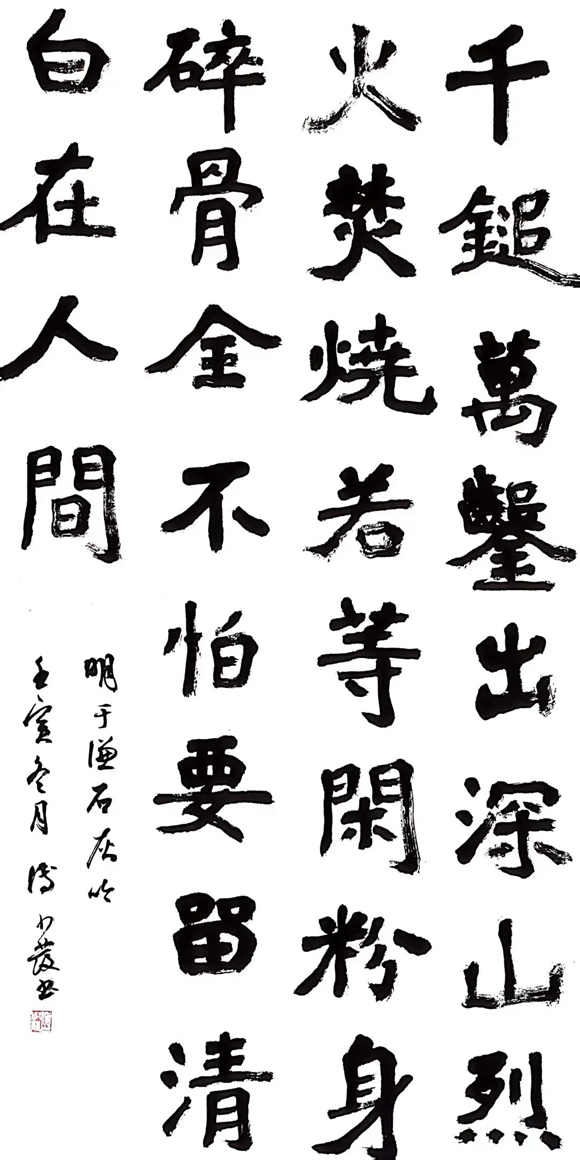 千鎚萬鑿出深山烈
火焚燒若等閑粉身
碎骨全不怕要留清
白在人間
明于谦石灰吟
壬寅冬月